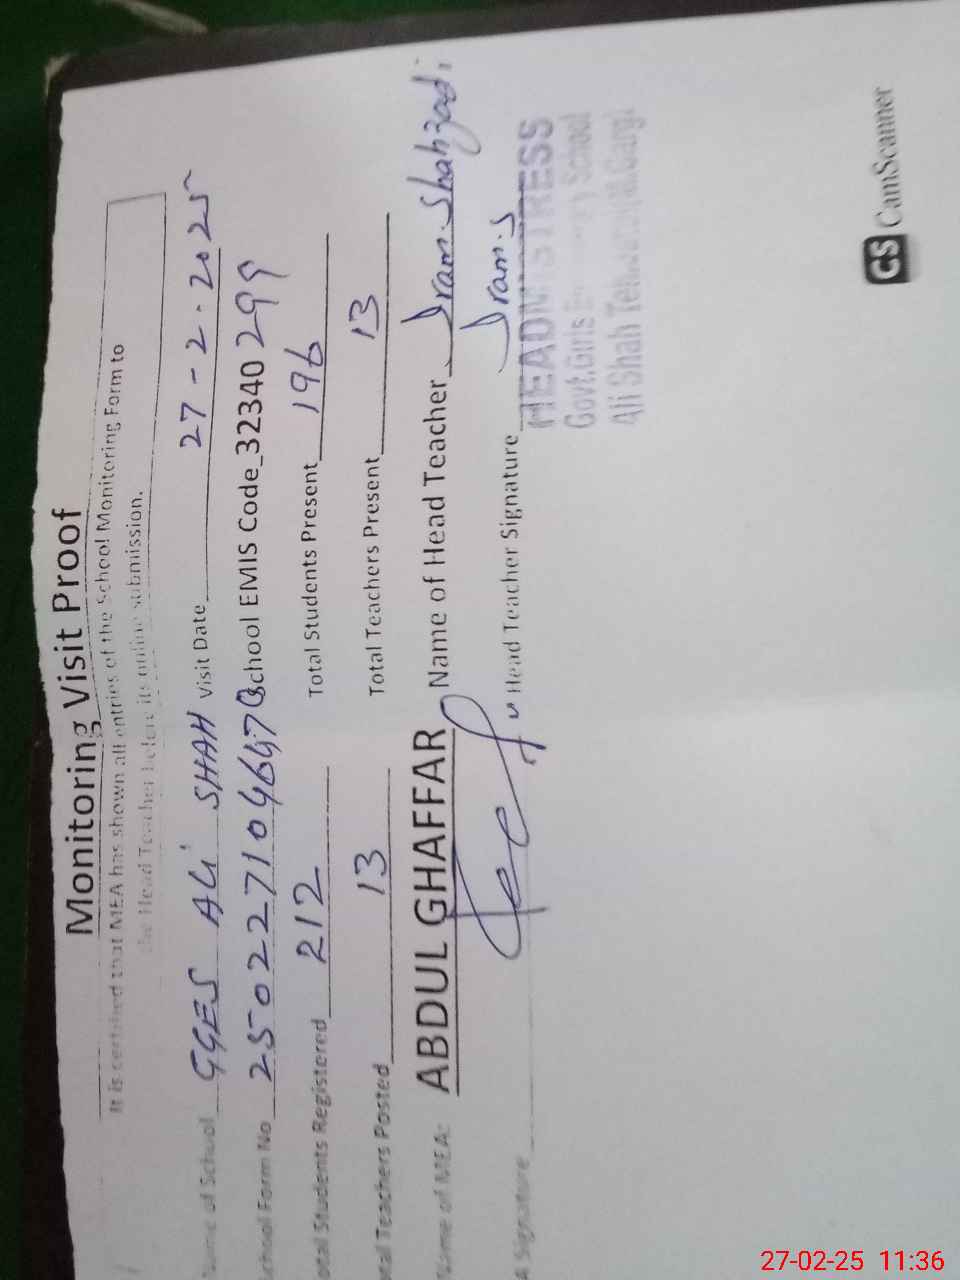 Monitoring Visit Proof
It is certified that MEA has shown all entries of the School Monitoring Form to
the Head Teacher before its online submission.
Name of School GGES ALI SHAH Visit Date 27-2-2025
School Form No School EMIS Code_32340299
Total Students Registered 212 Total Students Present 196
Total Teachers Posted 13 Total Teachers Present 13
Name of MEA: ABDUL GHAFFAR Name of Head Teacher Iram.Shahzadi
A Signature Head Teacher Signature Iram.S
HEADMISTRESS
Govt.Girls School
Ali Shah
CS CamScanner
27-02-25 11:36